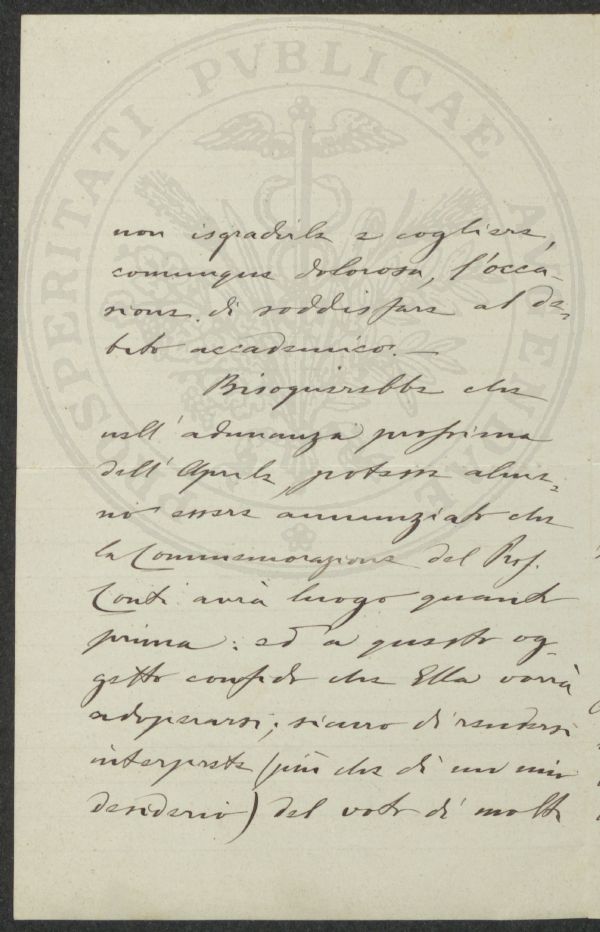 PROSPERITATI PVBLICAE AVGENDAE
non isgradirle e cogliere,
comunque dolorosa, l'occa-
sione di soddisfare al de-
bito accademico. —
Bisognerebbe che
nell' adunanza prossima
dell' Aprile, potesse alme-
no essere annunziato che
la Commemorazione del Prof.
Conti avrà luogo quanto
prima: ed a questo og-
getto confido che Ella vorrà
adoperarsi; sicuro di rendersi
interprete (più che di un mio
desiderio) del voto di molti